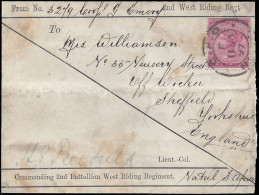 From No. 3279 Corpl G Emery 2nd West Riding Regt
To
Miss Williamson
No 35 Nursery Street
Off Wicker
Sheffield
Yorkshire
England
Lieut.-Col.
Commanding 2nd Battalion West Riding Regiment.
Natal S Africa